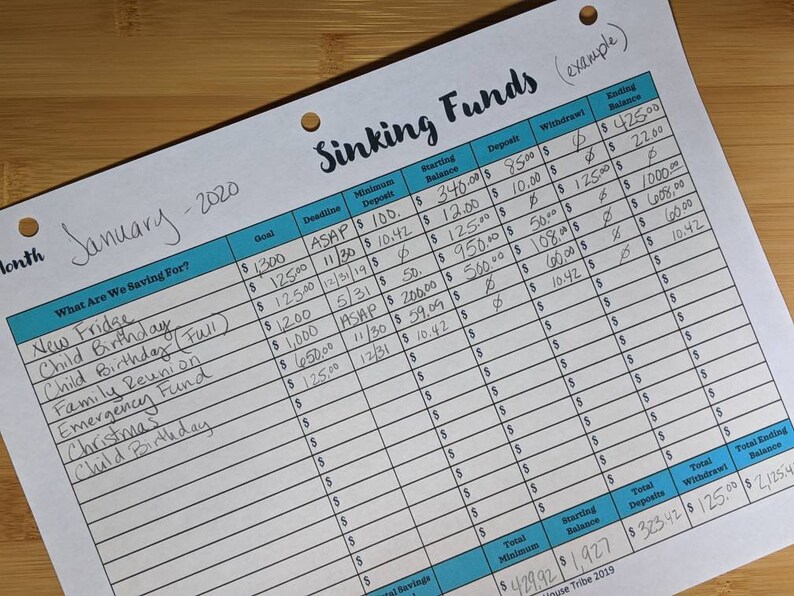 Sinking Funds (example)
Month January - 2020
What Are We Saving For? Goal Deadline Minimum Deposit Starting Balance Deposit Withdrawl Ending Balance
New Fridge $ 1300 ASAP $ 100. $ 340.00 $ 85.00 $ Ø $ 425.00
Child Birthday $ 125.00 11/30 $ 10.42 $ 12.00 $ 10.00 $ Ø $ 22.00
Child Birthday (Full) $ 125.00 12/31/19 $ Ø $ 125.00 $ Ø $ 125.00 $ Ø
Family Reunion $ 1,200 5/31 $ 50. $ 950.00 $ 50.00 $ Ø $ 1000.00
Emergency Fund $ 1,000 ASAP $ 200.00 $ 500.00 $ 108.00 $ Ø $ 608.00
Christmas $ 650.00 11/30 $ 59.09 $ Ø $ 60.00 $ Ø $ 60.00
Child Birthday $ 125.00 12/31 $ 10.42 $ Ø $ 10.42 $ $ 10.42
$ $ $ $ $ $
$ $ $ $ $ $
$ $ $ $ $ $
$ $ $ $ $ $
$ $ $ $ $ $
Total Savings Total Minimum Starting Balance Total Deposits Total Withdrawl Total Ending Balance
$ 429.92 $ 1,927 $ 323.42 $ 125.00 $ 2,125.4
House Tribe 2019